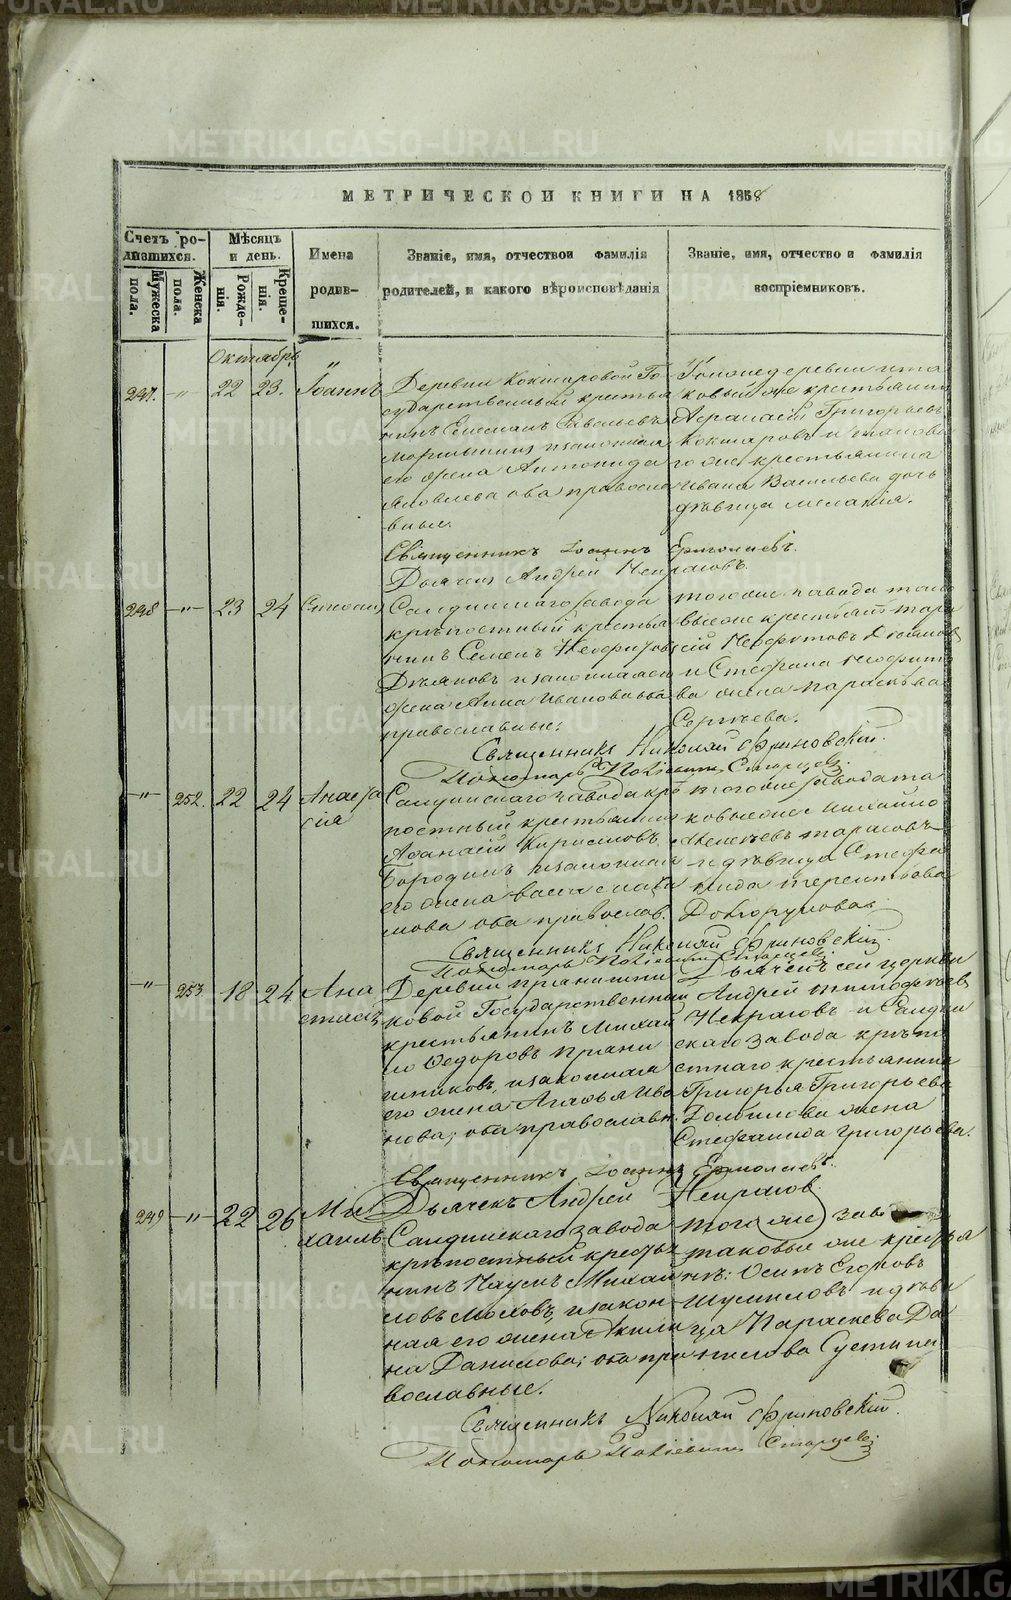 МЕТРИЧЕСКОЙ КНИГИ НА 1858
Счетъ ро-
дившихся.
Мужеска
пола.
Женска
пола.
Мѣсяцъ
и день.
Рожде-
нія.
Креще-
нія.
Имена
родив-
шихся.
Званіе, имя, отчество и фамилія
родителей, и какого вѣроисповѣданія
Званіе, имя, отчество и фамилія
воспріемниковъ.
Октябрь
247. " 22 23. Іоаннъ
Деревни Кокшаровой Го
сударственный крестья
нинъ Савельевъ
и законная
его жена Антонида
Яковлева оба правосла
вные.
Тойже деревни та
ковый же крестьянинъ
Афанасій Григорьевъ
Кокшаровъ и таково
го же крестьянина
Ивана Васильева дочь
дѣвица Меланія.
Священникъ Іоаннъ Ермолаевъ.
Дьячекъ Андрей Некрасовъ.
248 " 23 24 Стефанъ
Салдинскаго завода
крѣпостный крестья
нинъ Семенъ Неофитовъ
Дьяковъ и законная его
жена Анна Иванова оба
православные.
тогоже завода тако
выеже крестьян Тара
сій Неофитовъ Дьяковъ
и Стефана Неофито
ва жена Параскева
Сергѣева.
Священникъ Николай Фриновскій.
Пономарь Старцевъ.
" 252. 22 24 Анаста
сія
Салдинскаго завода крѣ
постный крестьянинъ
Афанасій Кирилловъ
Бородинъ и законная
его жена Васса
мова оба православ.
тогоже завода та
ковыеже Михайло
Алексѣевъ Тарасовъ
и дѣвица Стефа
нида Терентьева
Долгорукова.
Священникъ Николай Фриновскій.
Пономарь Старцевъ.
" 253. 18 24. Ана
стасія
Деревни Пряничні
ковой Государственный
крестьянинъ Михай
ло Федоровъ Пряни
шниковъ, и законная
его жена Агафья Ива
нова; оба православн.
Дьячекъ сей церкви
Андрей Тимофеевъ
Некрасовъ и Салдин
скаго завода крѣпо
стнаго крестьянина
Григорья Григорьева
Долбилова жена
Стефанида Григорьева.
Священникъ Іоаннъ Ермолаевъ.
Дьячекъ Андрей Некрасов
249 " 22 26 Ми
хаилъ
Салдинскаго завода
крѣпостный крестья
нинъ Наумъ Михаи
ловъ Моховъ, и закон
ная его жена Акили
на Данилова; оба пра
вославные.
того же заво
таковые же крестья
нъ: Осипъ Егоровъ
Шумиловъ и дѣви
ца Параскева Да
нилова
Священникъ Николай Фриновскій.
Пономарь Старцевъ.
METRIKI.GASO-URAL.RU